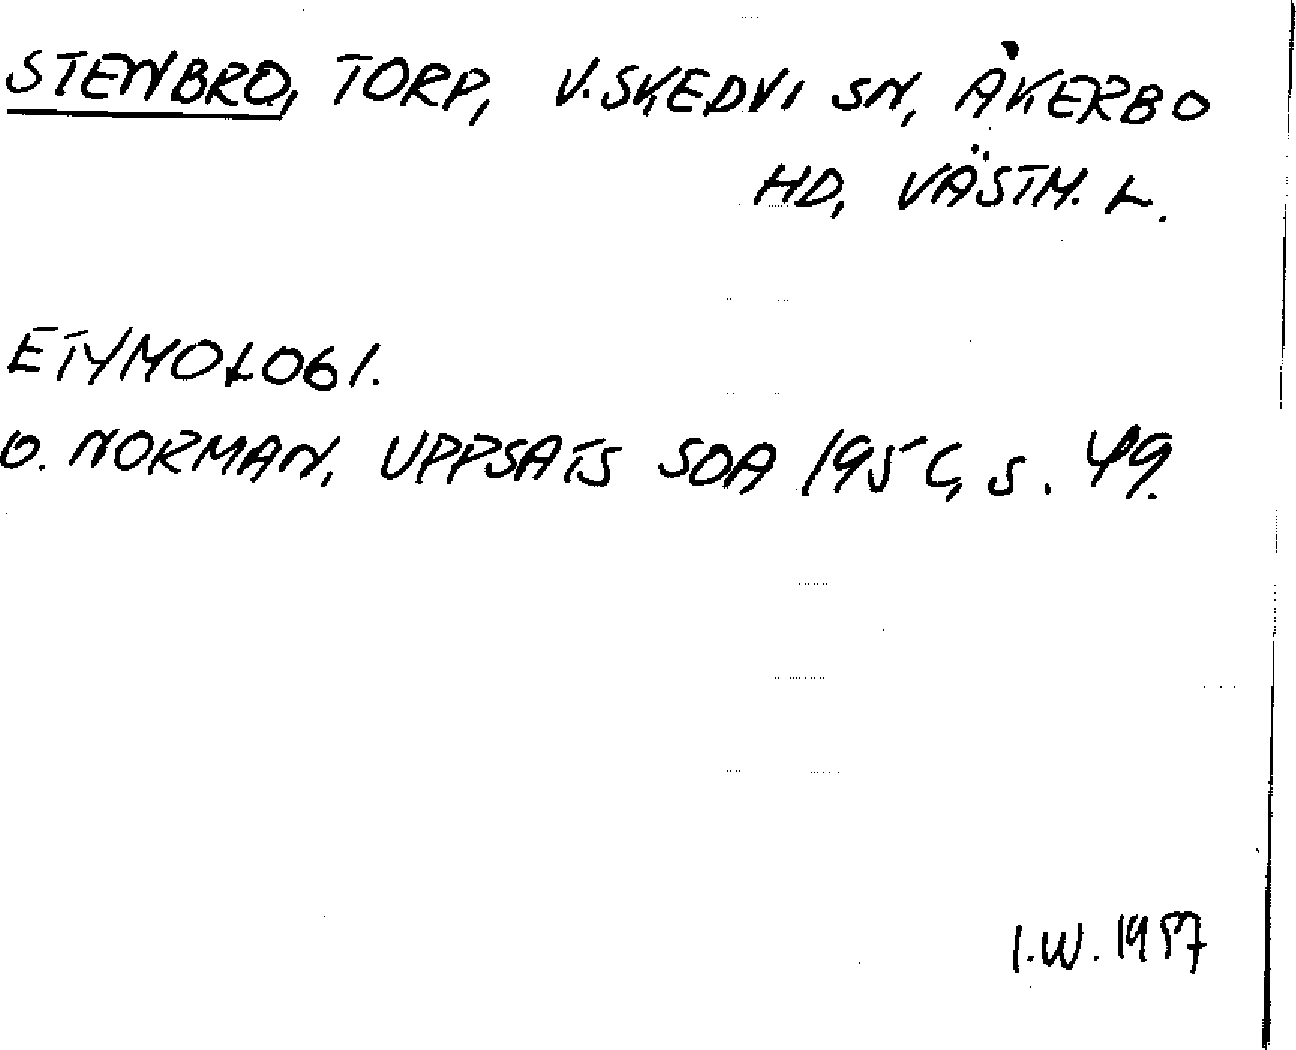 STENBRO, TORP, V. SKEDVI SN, ÅKERBO
HD, VÄSTM. L.
ETYMOLOGI.
O. NORMAN, UPPSATS SOA s. 49.
I.W.